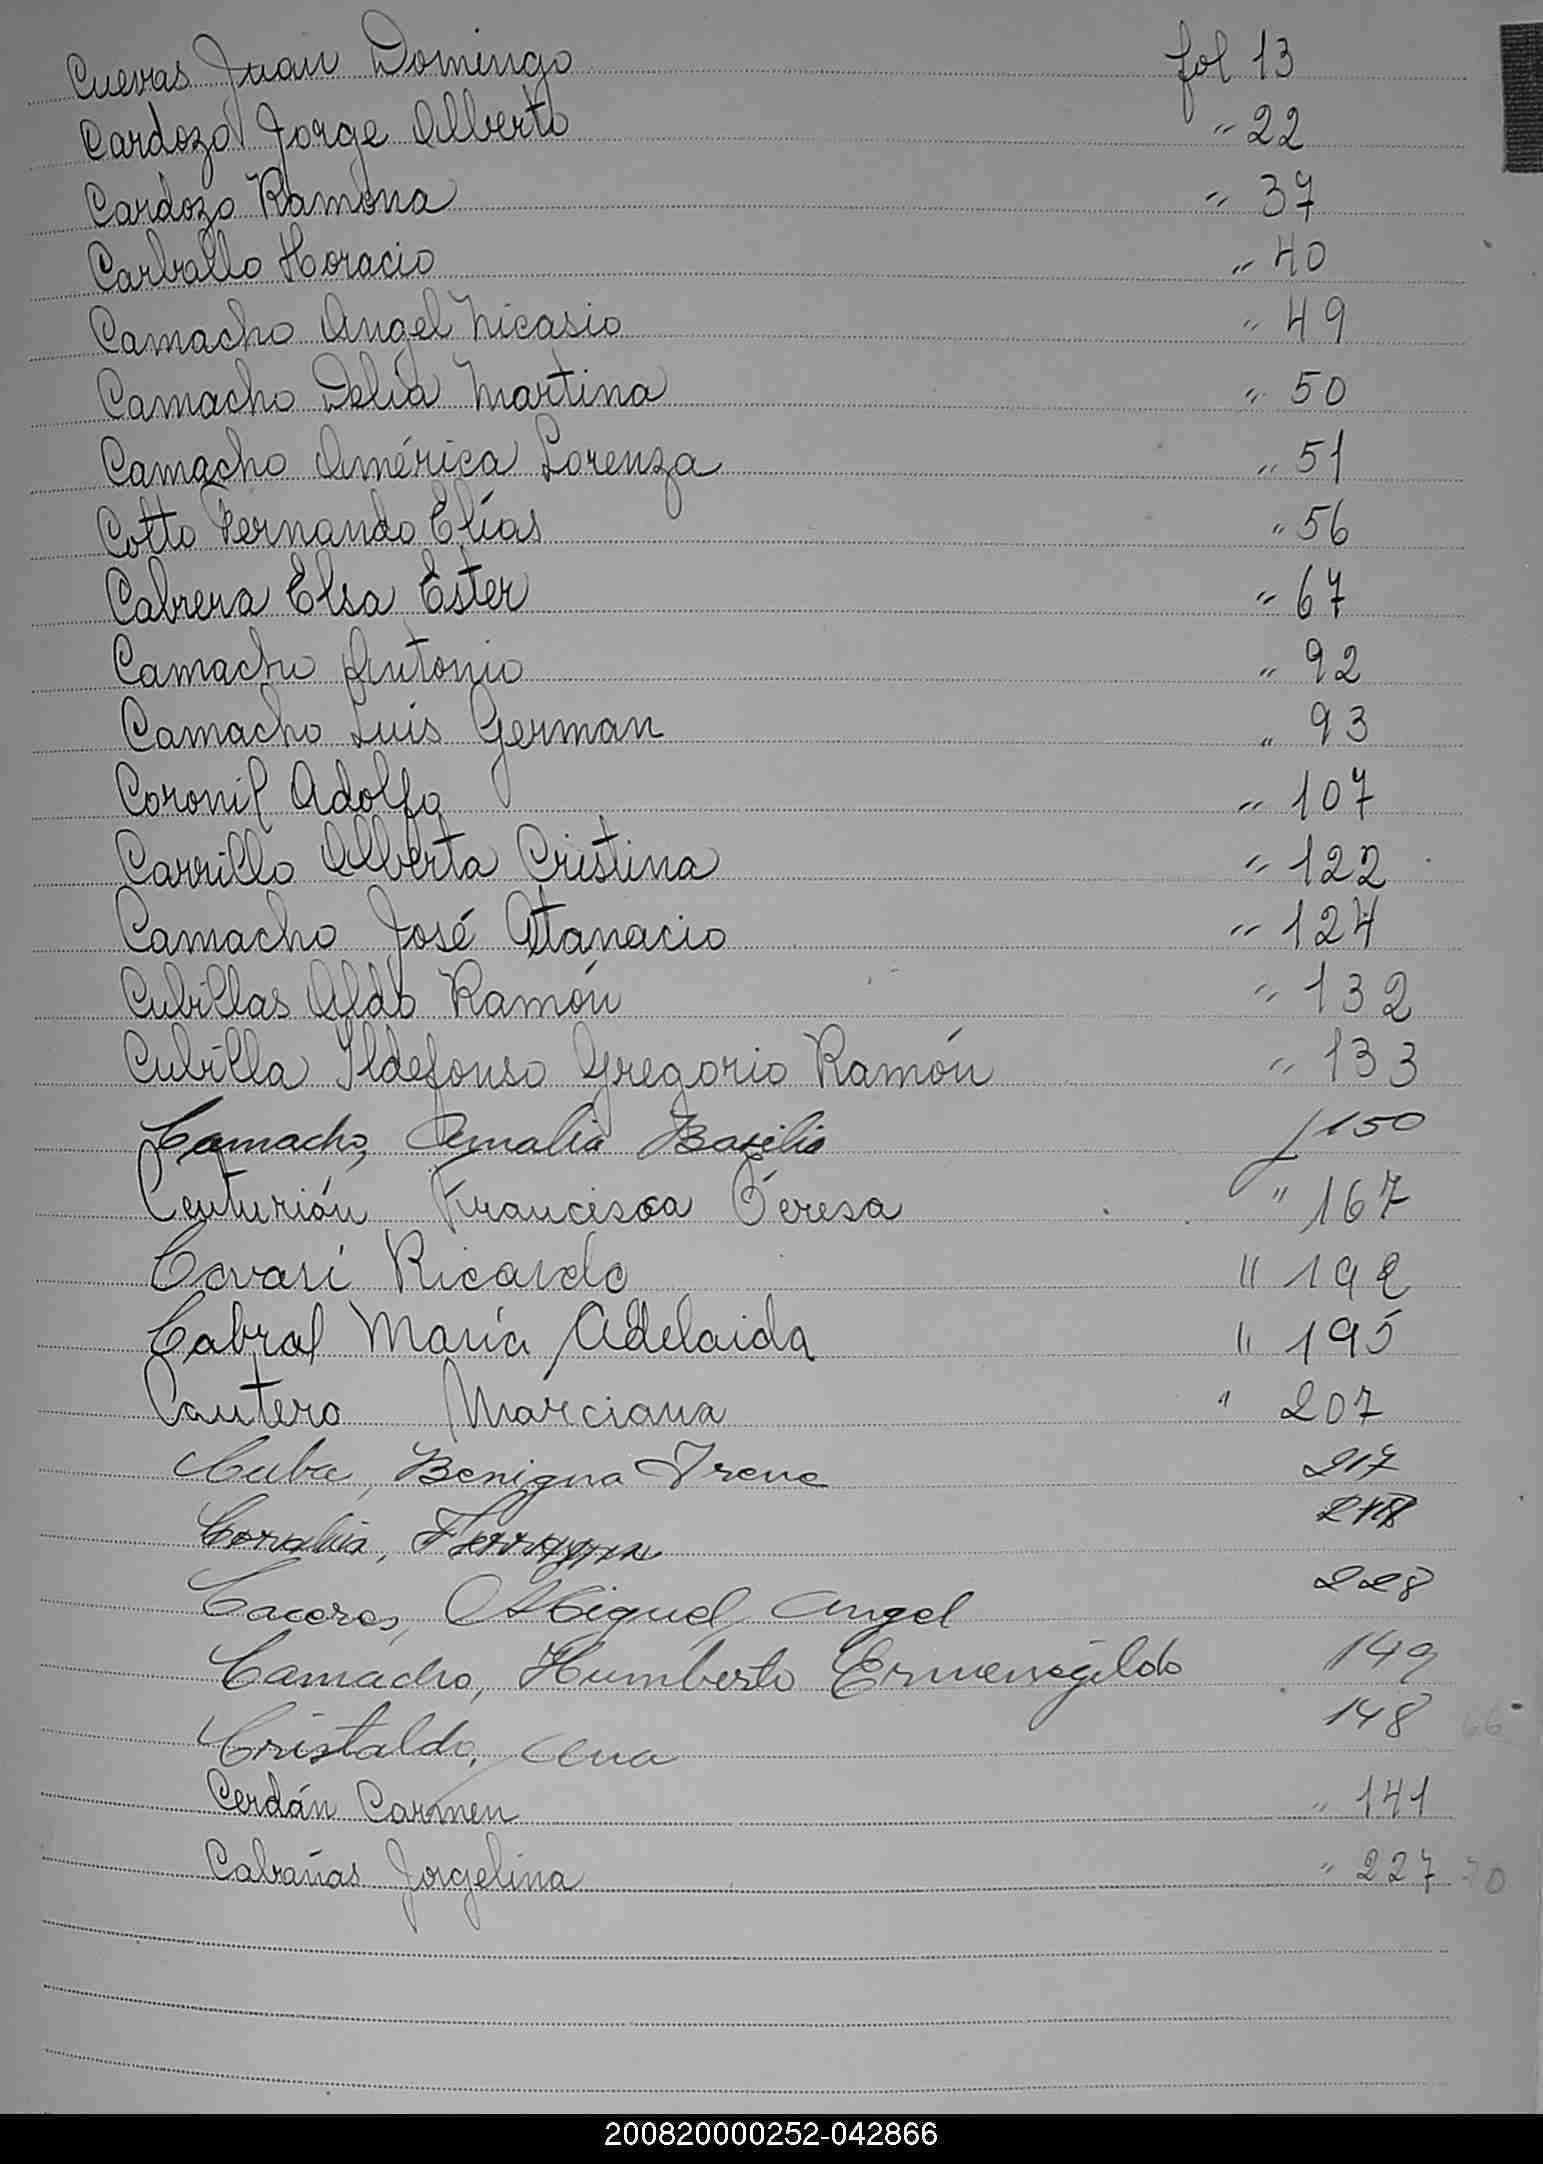 Cuevas Juan Domingo fol 13
Cardozo Jorge Alberto " 22
Cardozo Ramona " 37
Carballo Horacio " 40
Camacho Angel Nicasio " 49
Camacho Delia Martina " 50
Camacho América Lorenza " 51
Cotto Fernando Elías " 56
Cabrera Elsa Ester " 67
Camacho Antonio " 92
Camacho Luis German " 93
Coronil Adolfa " 107
Carrillo Alberta Cristina " 122
Camacho José Atanacio " 124
Cubillas Aldo Ramón " 132
Cubilla Ildefonso Gregorio Ramón " 133
Camacho, Amalia Basilia f 150
Centurión Francisca Teresa " 167
Covari Ricardo " 192
Cabral María Adelaida " 195
Cantero Marciana " 207
Cuba, Benigna Irene 217
218
Caceres, Miguel Angel 228
Camacho, Humberto Ermenegildo 149
Cristaldo, Ana 148 66
Cerdán Carmen " 141
Cabañas Jorgelina " 227 70
200820000252-042866